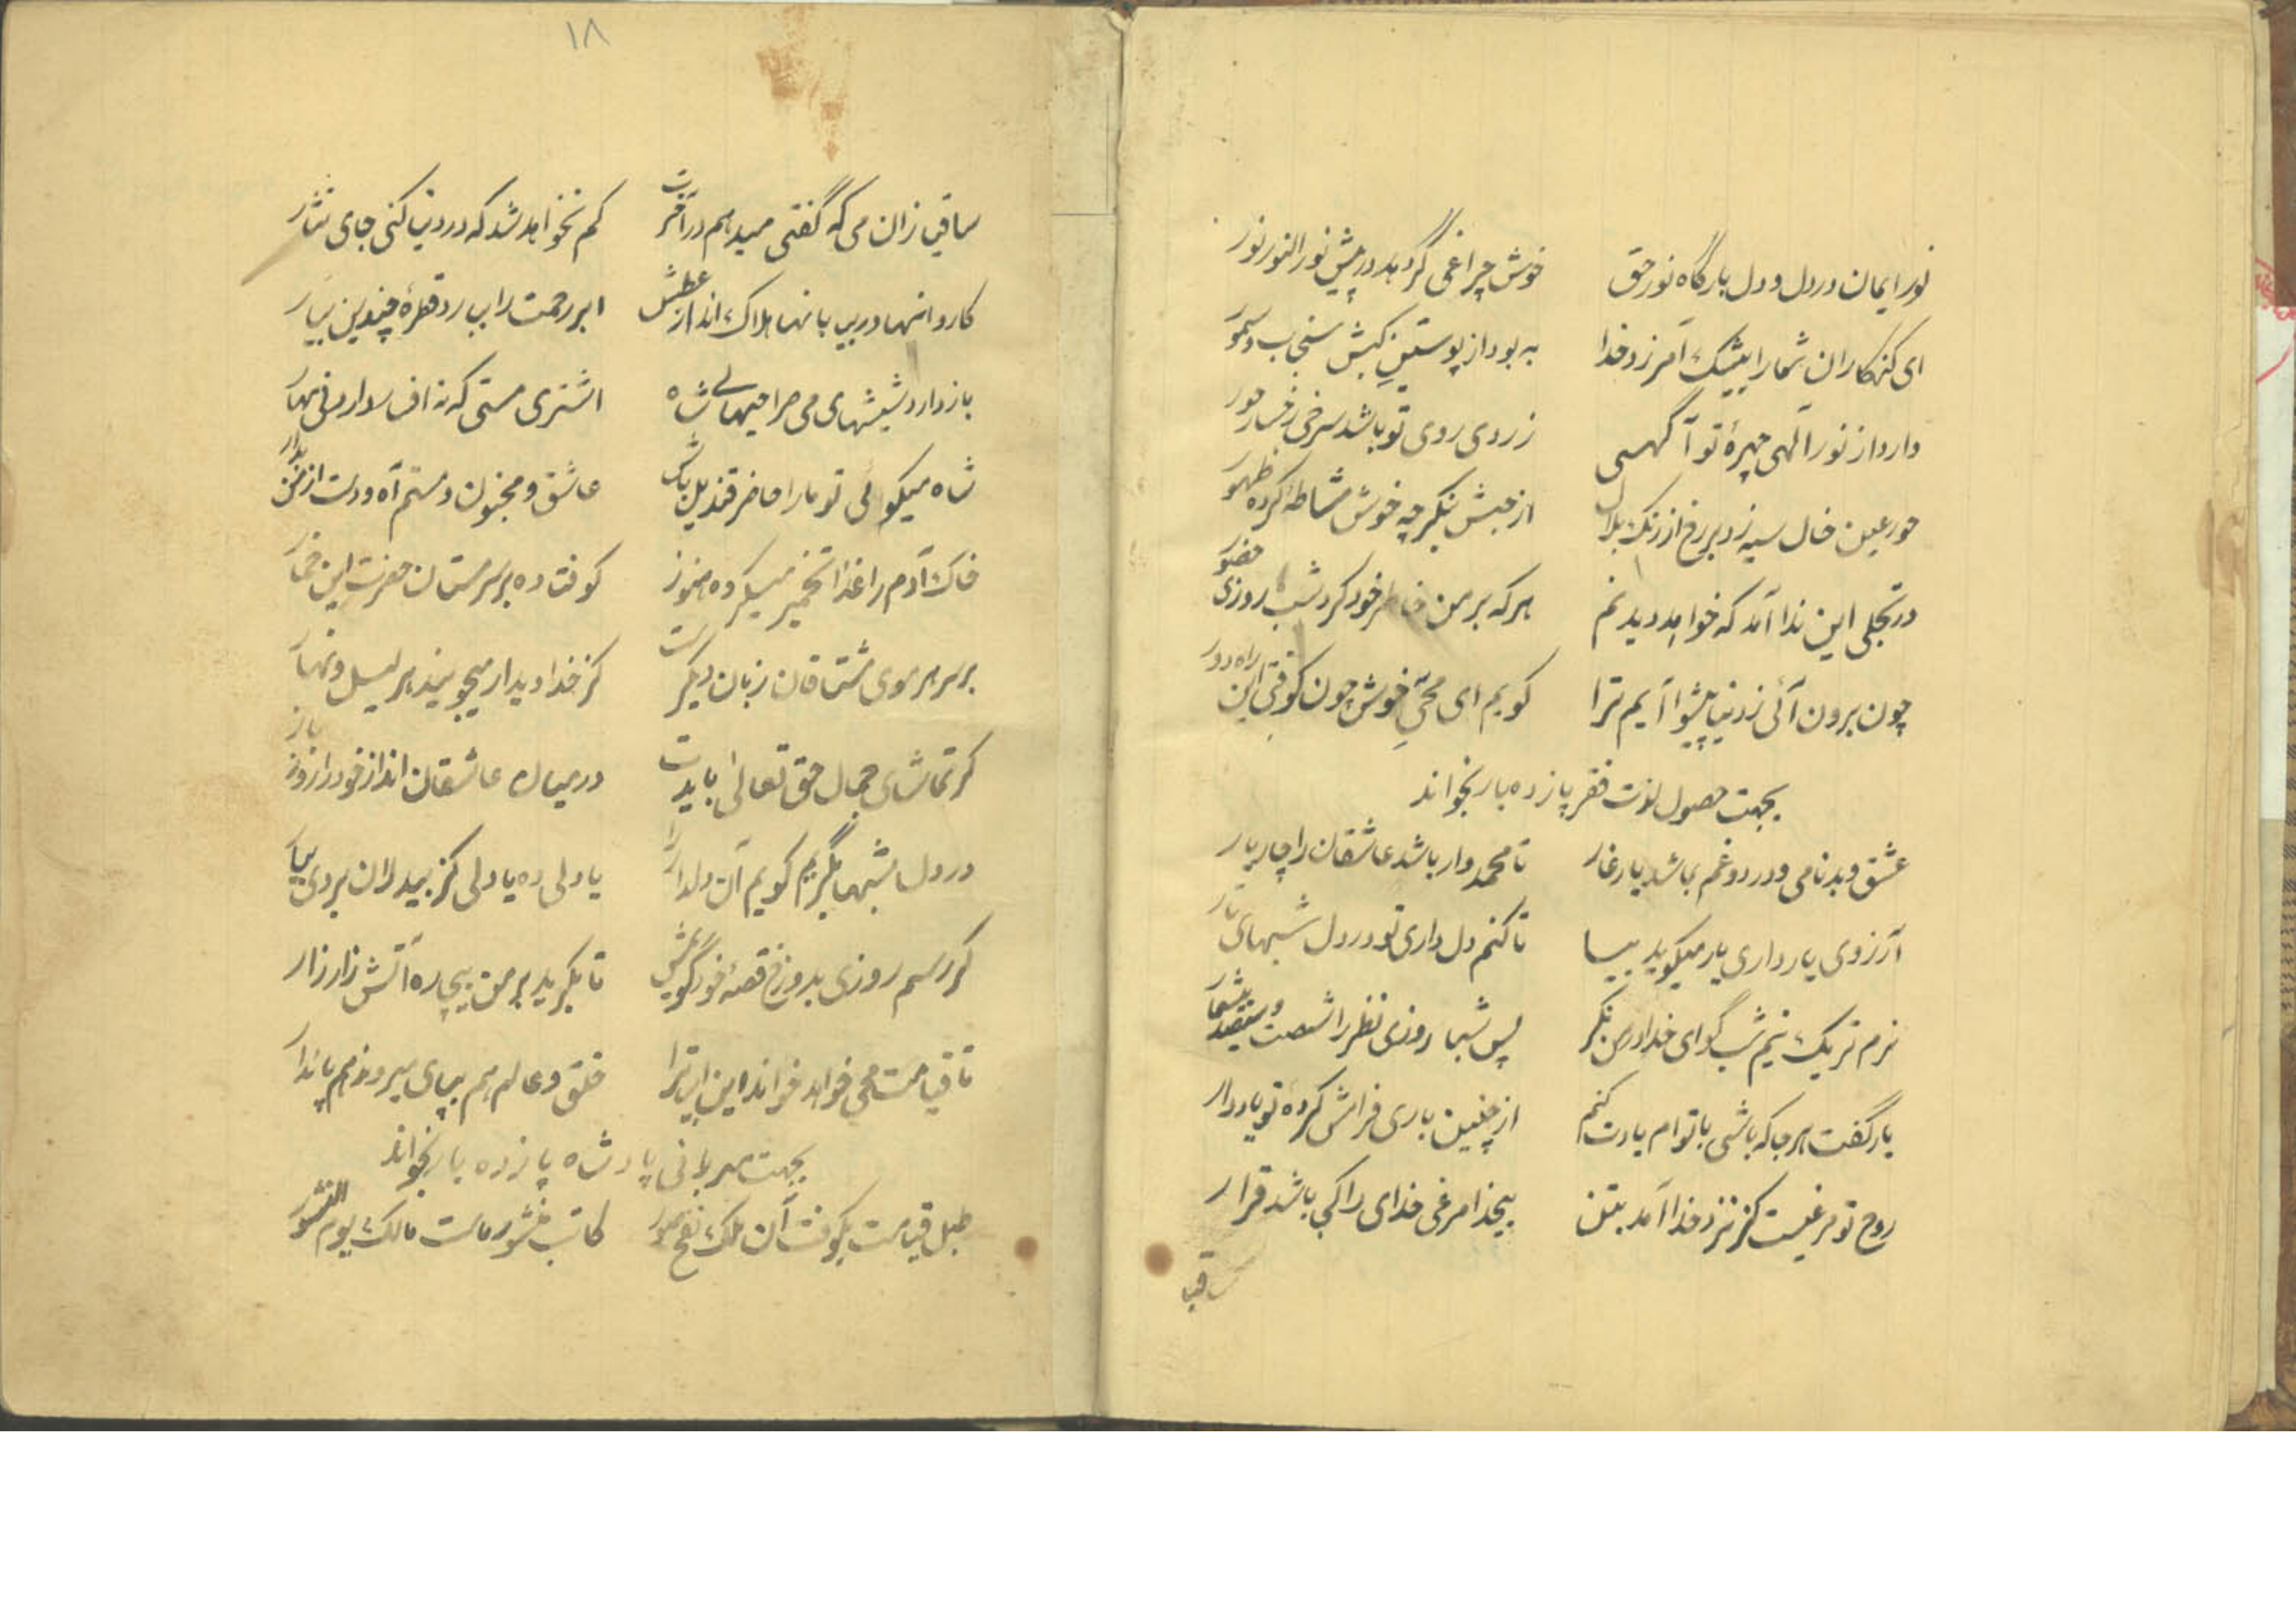 نور ایمان در دل و دل بارگاه نور حق خوش چراغی گر دهد در پیش نور النور نور
ای کنهکاران شما را بیشک آمرزد خدا به بود از پوستین کیش سنجاب و سمور
دارد از نور الهی چهرهٔ تو آگهی زردی روی تو باشد سرخی رخسار حور
حور عین خال سیه زد بر رخ از رنک بلال از حبش بنکر چه خوش مشاطهٔ کرده ظهور
در تجلی این ندا آمد که خواهد دیدنم هر که بر من خاطر خود کرد شب روزی حضور
چون برون آئی ز دنیا پیشوا آیم ترا کویم ای محیی خوش چون کوفتی این راه دور
بجهت حصول لذت فقر پانزده بار بخواند
عشق و بدنامی و درد و غم بما شد یار غار تا محمد وار باشد عاشقان را چار یار
آرزوی یار داری یار میکوید بیا تا کنم دل داری تو در دل شبهای تار
نرم نرمک نیم شب کو ای خدا در من نکر پس شبها روزی نظر را شصت و سیصد میشمار
یار گفت هر جا که باشی با توام یادت کنم از چنین یاری فرامش کردهٔ تو یاد دار
روح تو مرغیست کز نزد خدا آمد بتن بیخدا مرغی خدای را کی باشد قرار
ساقیا
۱۸
ساقیا زان می که گفتی میدهم در آخرت کم نخواهد شد که در دنیا کنی جای نثار
کاروانها در بیابانها هلاک اند از عطش ابر رحمت را ببارد قطرهٔ چندین بیار
باز دارد شیشهای می صراحیهای شاه اشتری مستی که نه افسار دارد نی مهار
شاه میکوئی تو ما را حاضر قندیل باش عاشق و مجنون و مستم آه و دست از من بدار
خاک آدم را خدا تخمیر میکرده هنوز کوفتاده بر سر مستان حضرت این خمار
بر سر هر موی مشتاقان زبان دیکرست کز خدا دیدار میجویند هر لیل و نهار
کر تماشای جمال حق تعالی بایدت در میان عاشقان انداز خود را روز باز
در دل شبها بگریم کویم آن دلدار را یا دلی ده یا دلی کز بیدلان بردی بیار
کر رسم روزی بدوزخ قصهٔ خود گویمش تا بکرید بر من بیچاره آتش زار زار
تا قیامت محیی خواهد خواند این ابیات را خلق و عالم هم بپای میروند هم پاندار
بجهت مهربانی پادشاه پانزده بار بخواند
طبل قیامت بکوفت آن ملک نفخ صور کاتب منشور ماست مالک یوم النشور